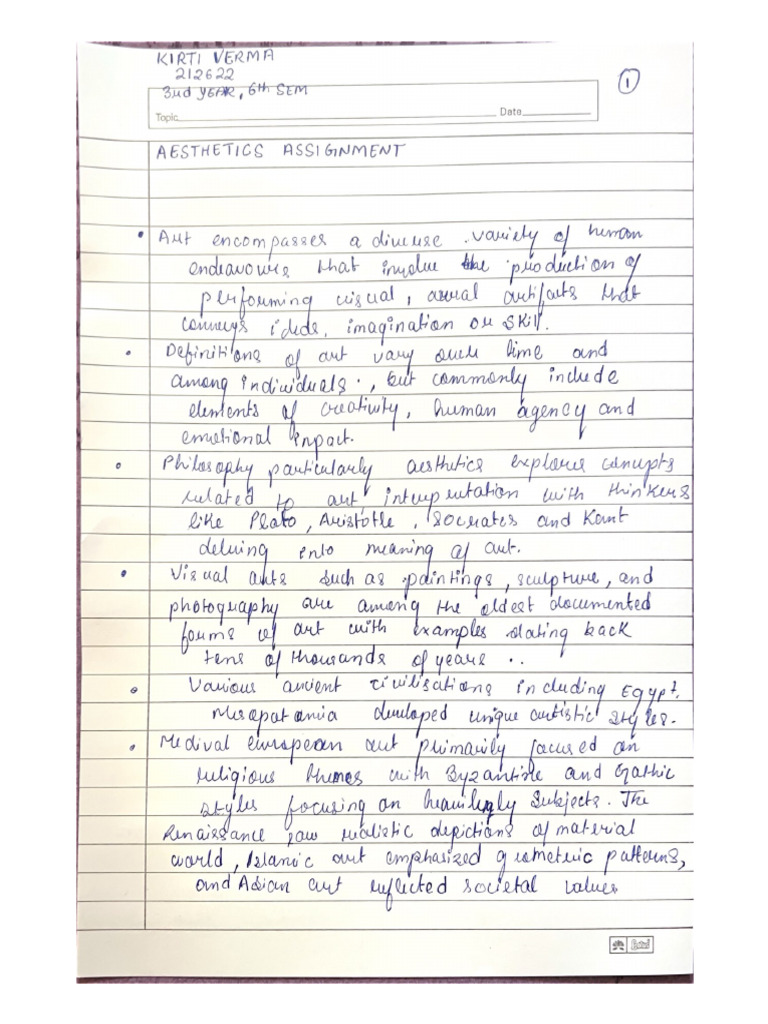 KIRTI VERMA
212622
3rd YEAR, 6th SEM
1
Topic
Date
AESTHETICS ASSIGNMENT
• Art encompasses a diverse variety of human
endeavours that involve the production of
performing visual, aural artifacts that
conveys ideas, imagination or skill.
• Definitions of art vary over time and
among individuals, but commonly include
elements of creativity, human agency and
emotional impact.
• Philosophy particularly aesthetics explores concepts
related to art, interpretation with thinkers
like Plato, Aristotle, Socrates and Kant
delving into meaning of art.
• Visual arts such as paintings, sculpture, and
photography are among the oldest documented
forms of art with examples dating back
tens of thousands of years ..
• Various ancient civilisations including Egypt,
Mesopotamia developed unique artistic styles.
• Medival european art primarily focused on
religious themes with Byzantine and Gothic
styles focusing on heavingly subjects. The
Renaissance saw realistic depictions of material
world, Islamic art emphasized geometric patterns,
and Asian art reflected societal values